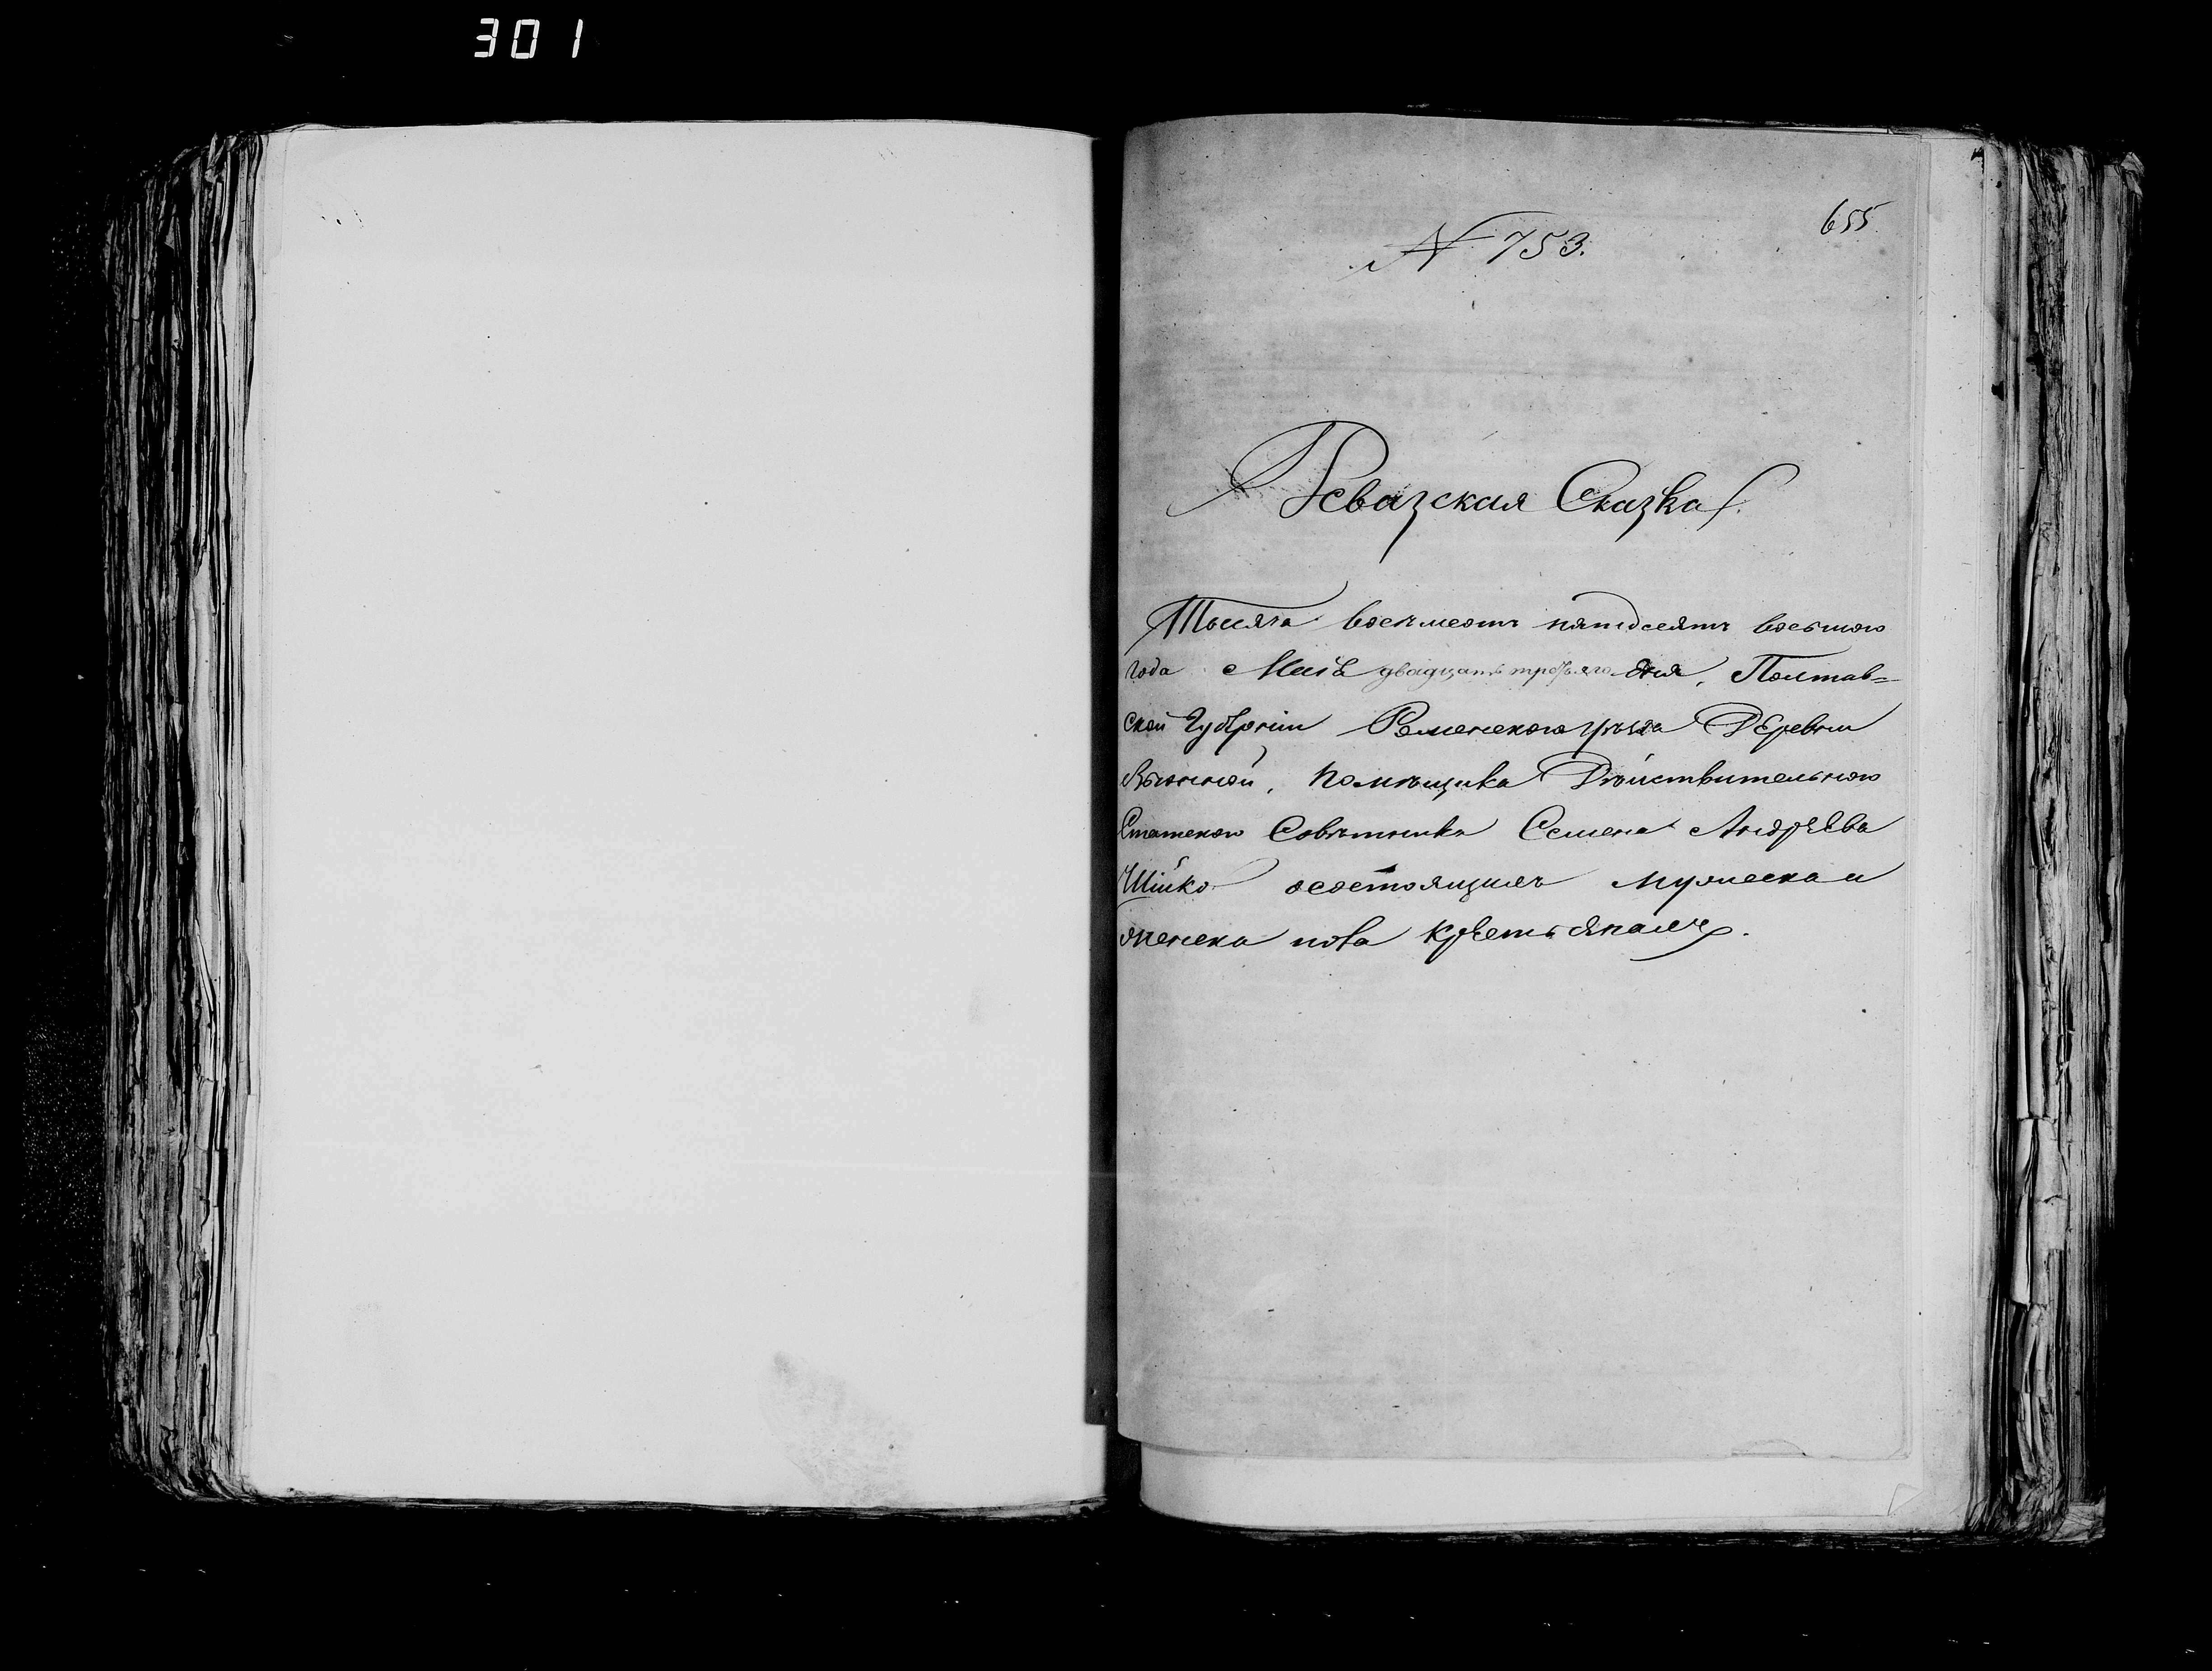 301
655
№ 753.
Ревизская Сказка.
Тысяча восемьсотъ пятьдесятъ восьмого
года Маія двадцать третьяго дня, Полтав=
ской Губерніи Роменского уезда Деревни
помѣщика Действительного
Статского Совѣтника Семена Андреева
состоящихъ мужеска и
женска пола крестьянахъ.